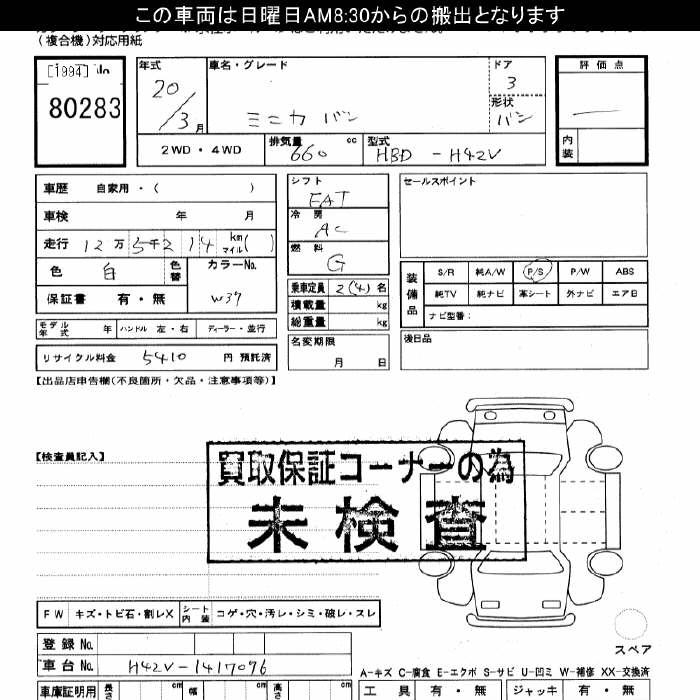 この車両は日曜日AM8:30からの搬出となります
(複合機)対応用紙
[1994]
80283
年式 車名・グレード ドア 評価点
20/3月 ミニカ バン 3
形状
バン
2WD・4WD 排気量 660 cc 型式 HBD-H42V 内装
車歴 自家用・( ) シフト FAT セールスポイント
車検 年 月 冷房 AC
走行 12万5千214 km マイル( ) 燃料 G
色 白 色替 カラーNo. W37
保証書 有・無
乗車定員 2(4)名
積載量 kg
総重量 kg
装備品 S/R 純A/W P/S P/W ABS
純TV 純ナビ 革シート 外ナビ エアB
ナビ型番:
モデル年式 年 ハンドル 左・右 ディーラー・並行
名変期限 月 日
後日品
リサイクル料金 5410 円 預託済
【出品店申告欄(不良箇所・欠品・注意事項等)】
【検査員記入】
買取保証コーナーの為
未検査
FW キズ・トビ石・割レX シート内装 コゲ・穴・汚レ・シミ・破レ・スレ
登録No.
車台No. H42V-1417096
スペア
A-キズ C-腐食 E-エクボ S-サビ U-凹ミ W-補修 XX-交換済
車庫証明用 長さ cm 幅 cm 高さ cm 工具 有・無 ジャッキ 有・無